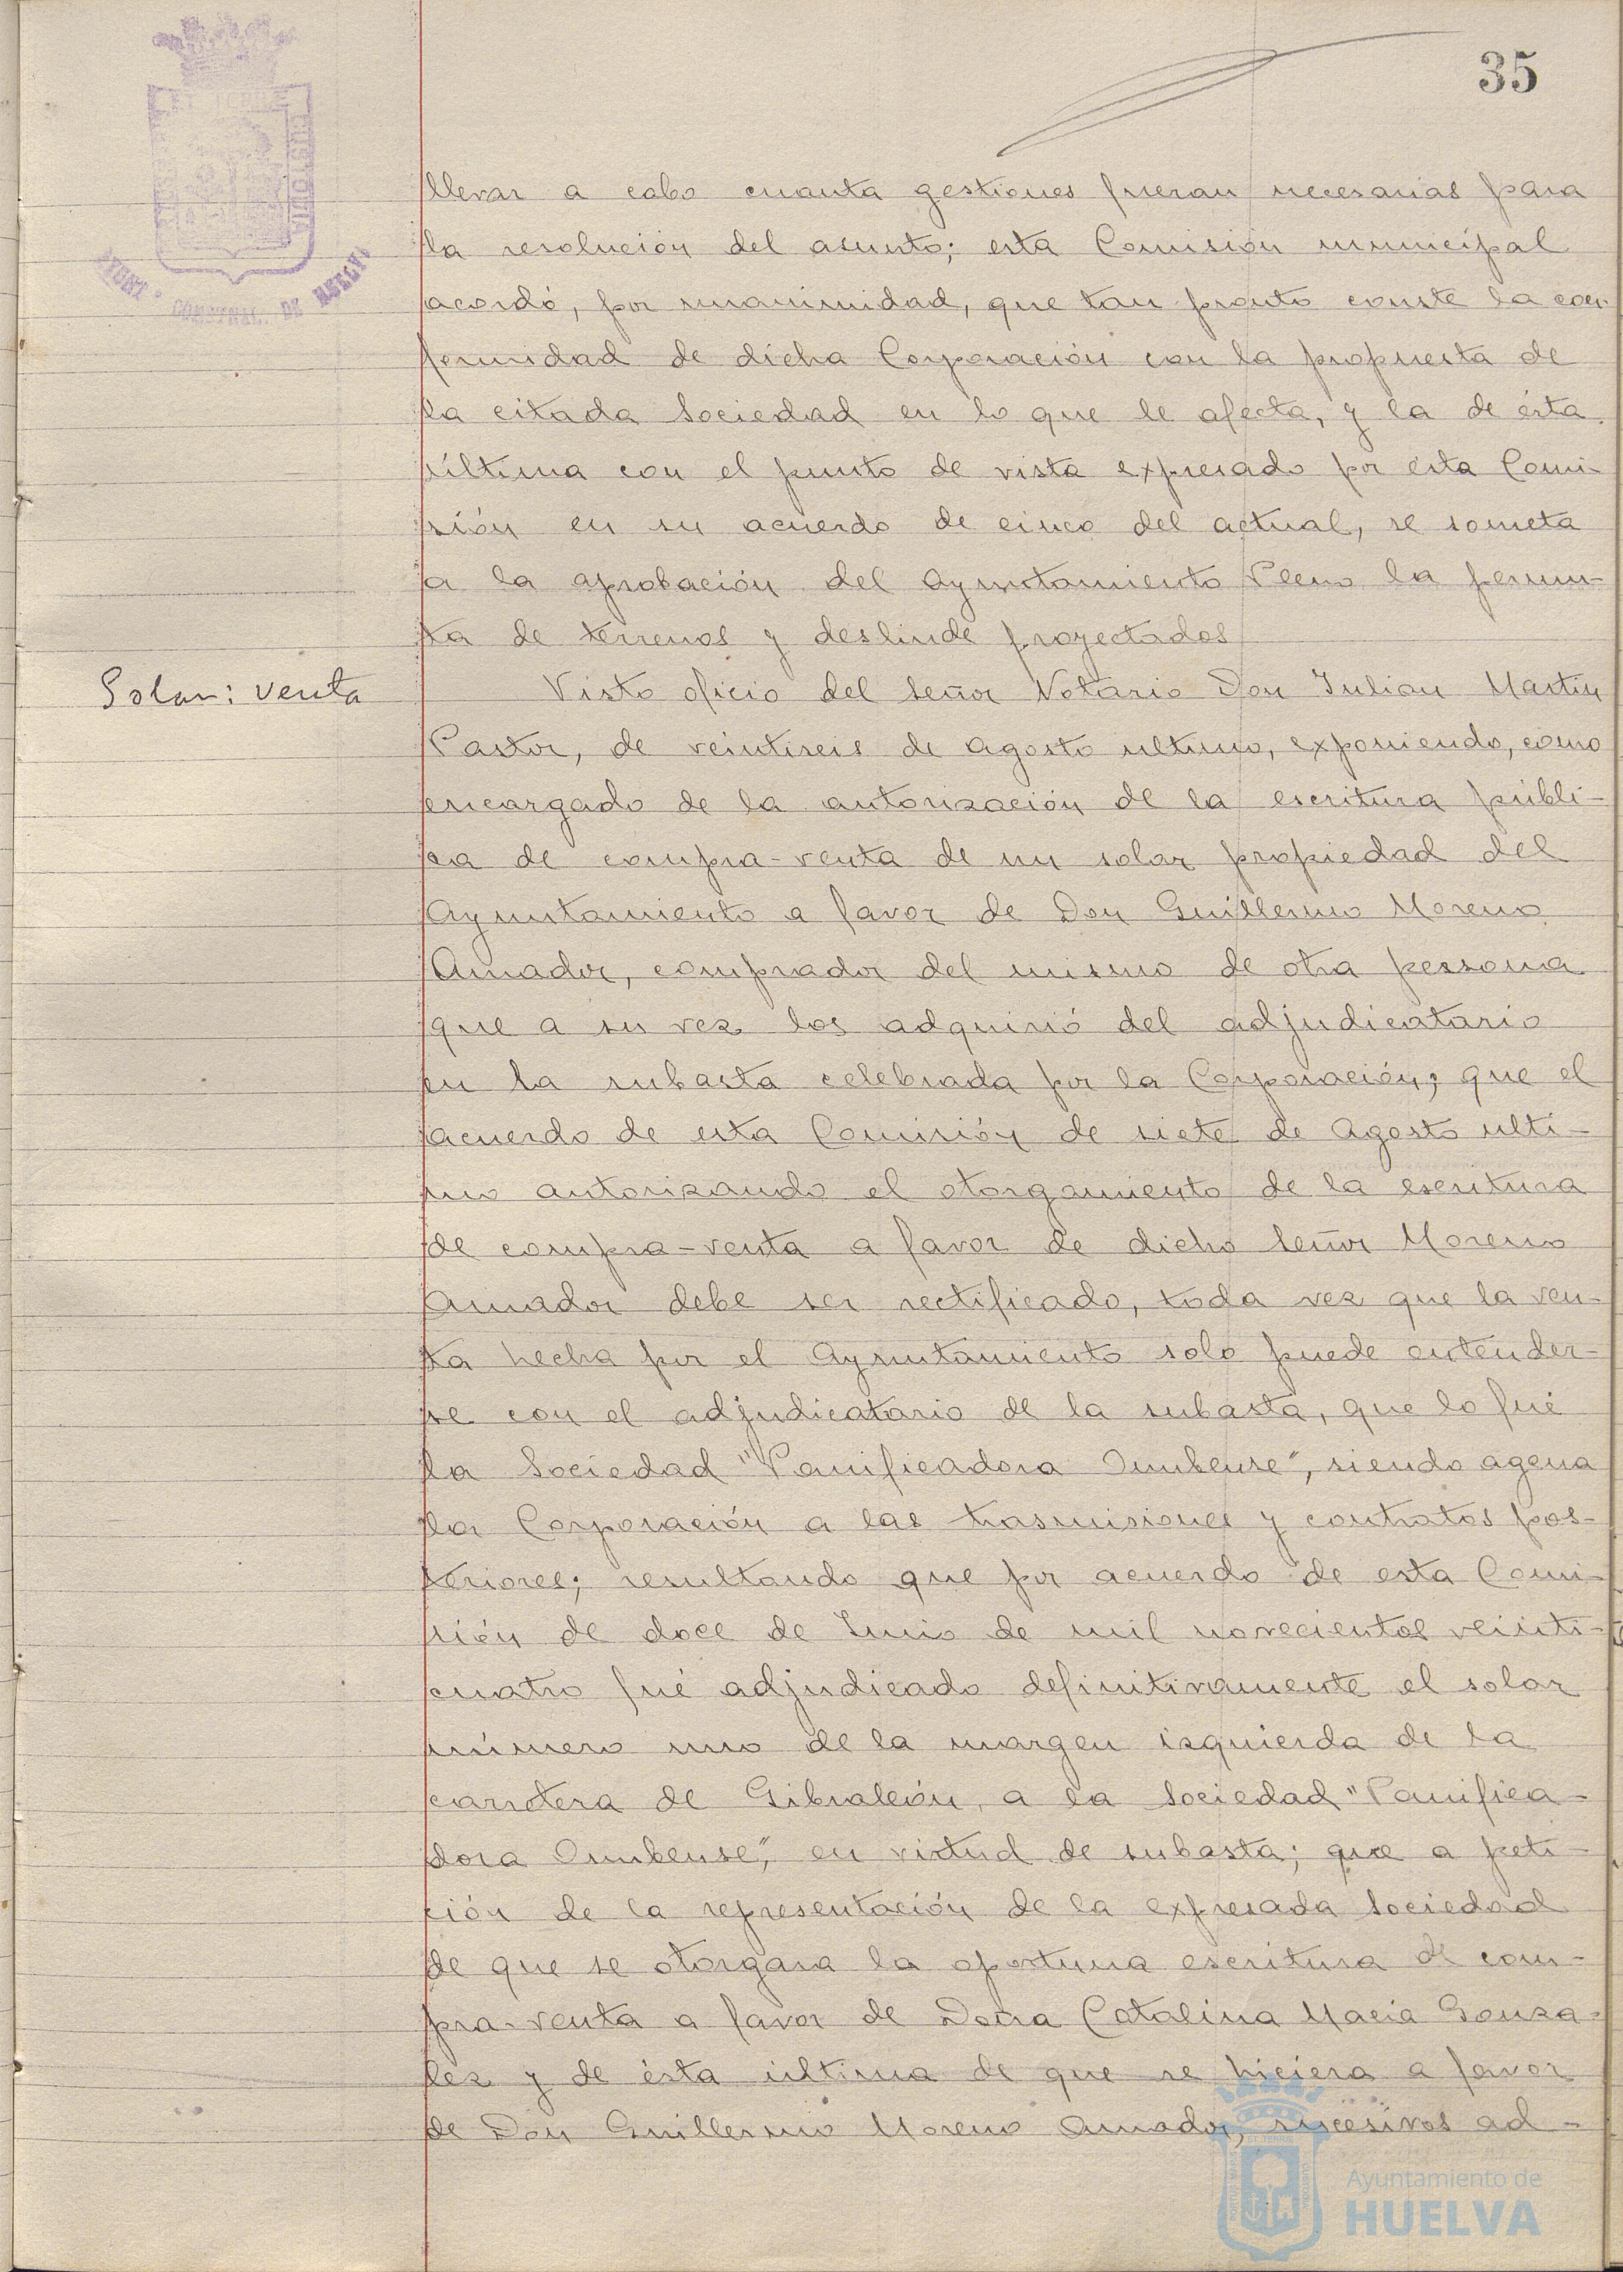 35
llevar a cabo cuanta gestiones fueran necesarias para
la resolución del asunto; esta Comisión municipal
acordó, por unanimidad, que tan pronto conste la con-
formidad de dicha Corporación con la propuesta de
la citada Sociedad en lo que le afecta, y la de ésta
última con el punto de vista expresado por esta Comi-
sión en su acuerdo de cinco del actual, se someta
a la aprobación del Ayuntamiento Pleno la permu-
ta de terrenos y deslinde proyectados
Solar: venta
Visto oficio del Señor Notario Don Julian Martin
Pastor, de veintiseis de Agosto ultimo, exponiendo, como
encargado de la autorización de la escritura públi-
ca de compra-venta de un solar propiedad del
Ayuntamiento a favor de Don Guillermo Moreno
Amador, comprador del mismo de otra persona
que a su vez los adquirió del adjudicatario
en la subasta celebrada por la Corporación; que el
acuerdo de esta Comisión de siete de Agosto ulti-
mo autorizando el otorgamiento de la escritura
de compra-venta a favor de dicho Señor Moreno
Amador debe ser rectificado, toda vez que la ven-
ta hecha por el Ayuntamiento solo puede entender-
se con el adjudicatario de la subasta, que lo fué
la Sociedad "Panificadora Onubense", siendo agena
la Corporación a las trasmisiones y contratos pos-
teriores; resultando que por acuerdo de esta Comi-
sión de doce de Junio de mil novecientos veinti-
cuatro fué adjudicado definitivamente el solar
número uno de la margen izquierda de la
carretera de Gibraleón, a la Sociedad "Panifica-
dora Onubense", en virtud de subasta; que a peti-
ción de la representación de la expresada Sociedad
de que se otorgara la oportuna escritura de com-
pra-venta a favor de Doña Catalina Macia Gonza-
lez y de ésta última de que se hiciera a favor
de Don Guillermo Moreno Amador, sucesivos ad-
AYUNT. CONSTNAL. DE HUELVA
Ayuntamiento de
HUELVA